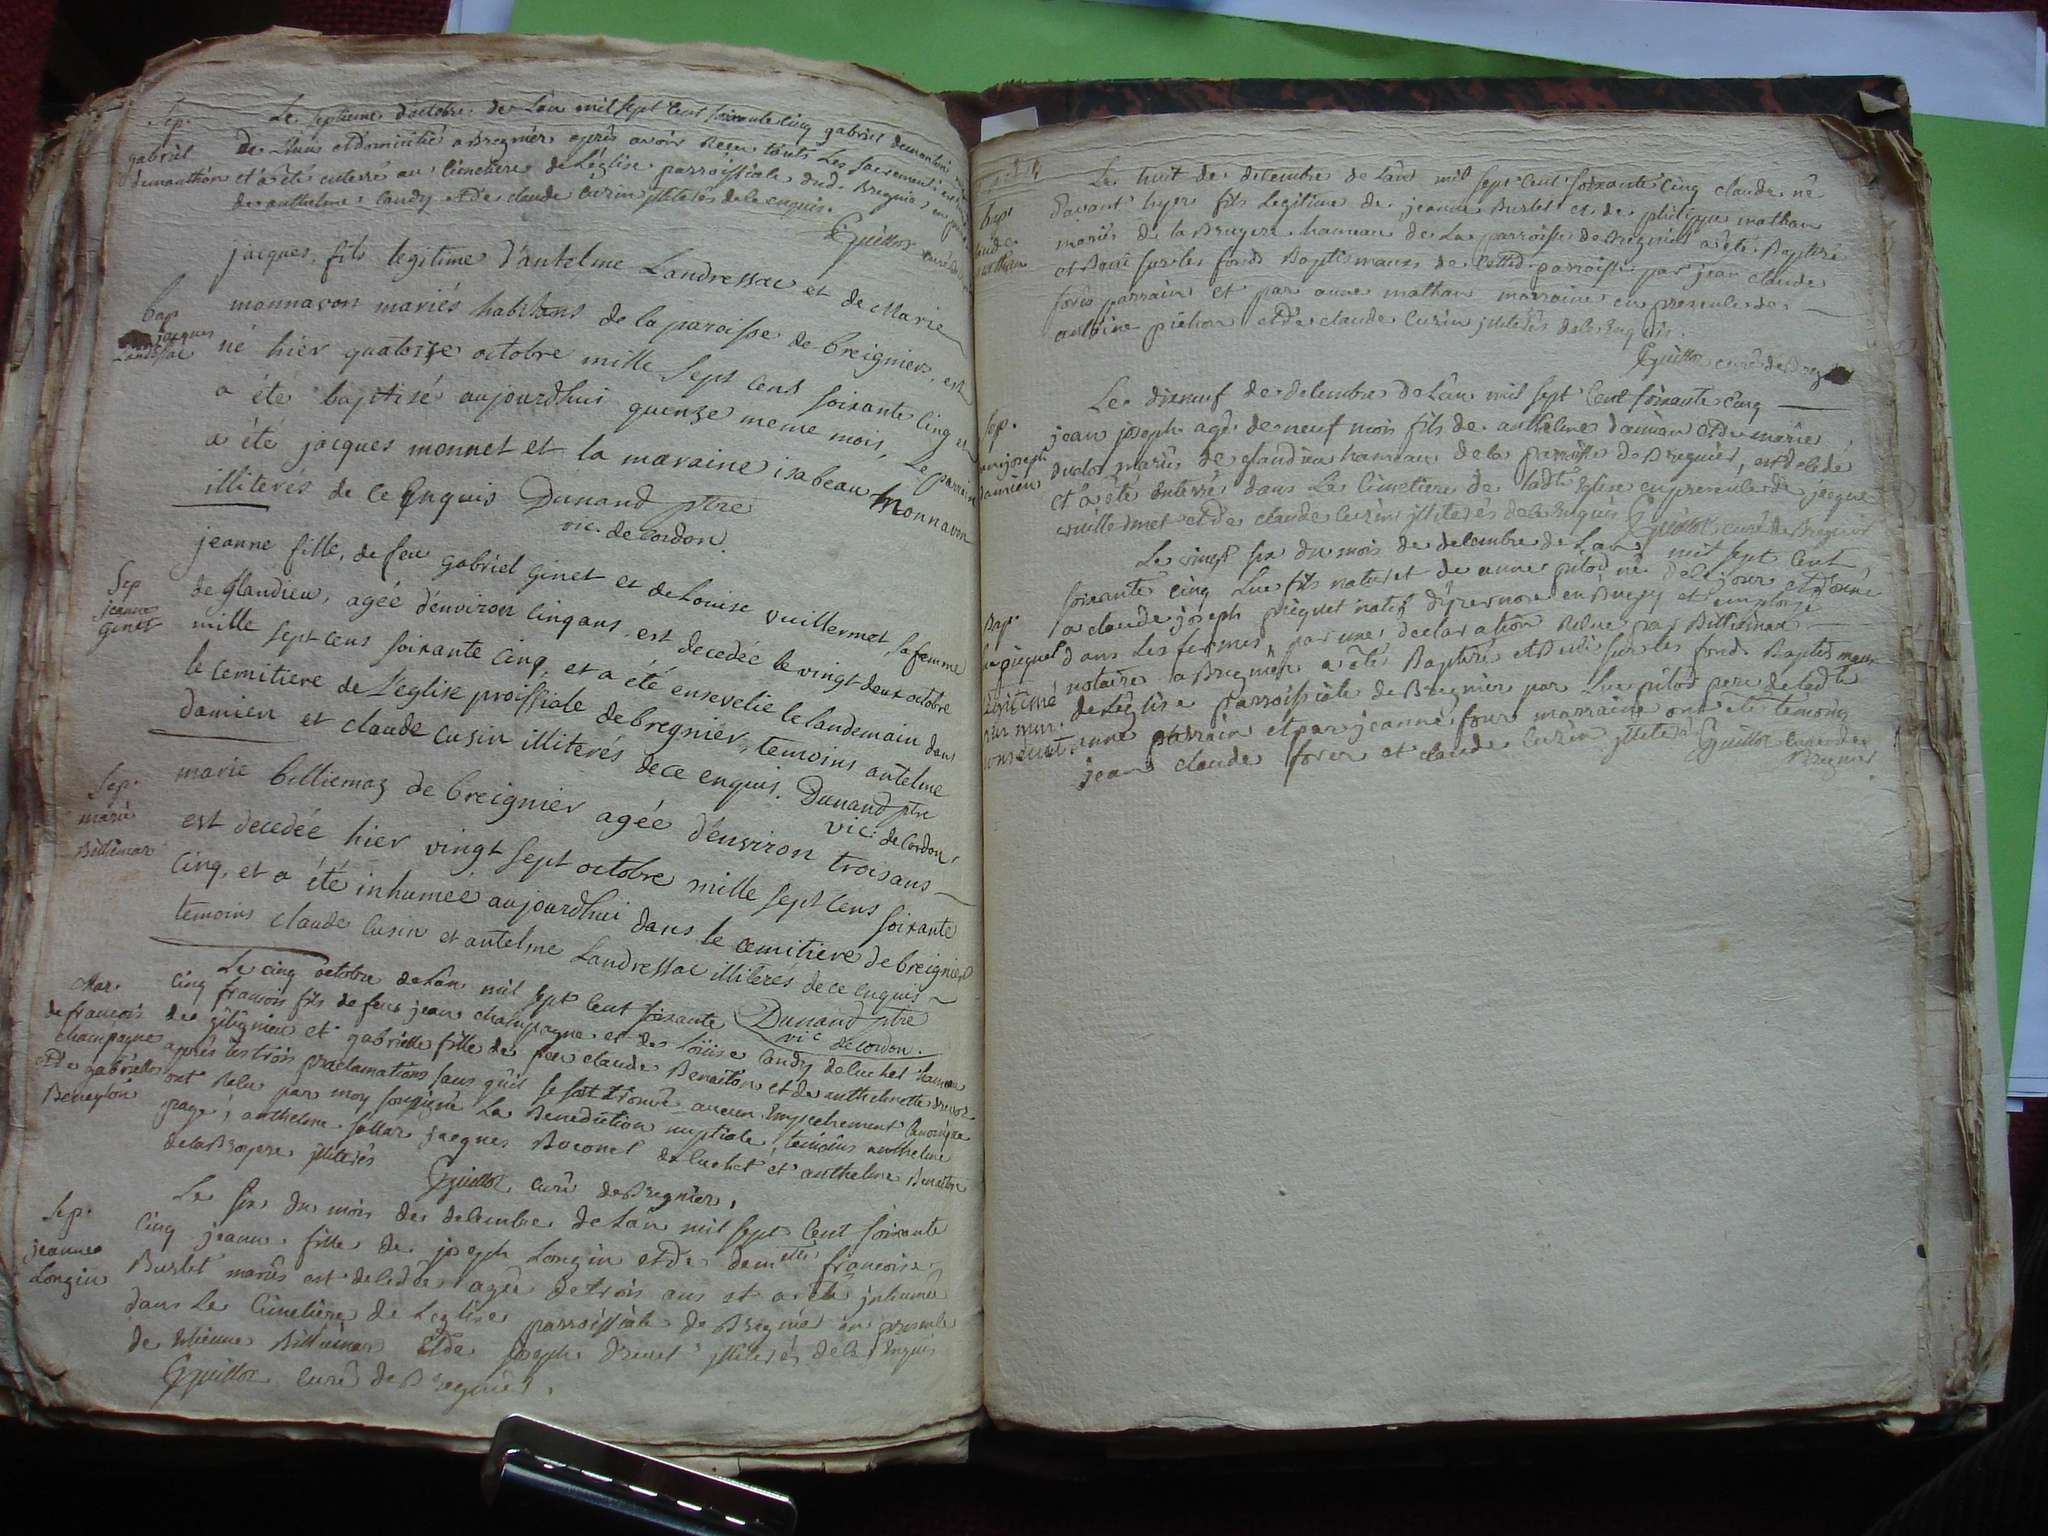 Sep.
gabriel
demanthon
Le septieme d'octobre de L'an mil sept Cent soixante Cinq gabriel demanthon
de Lhuis et Domicilié a Bregnier après avoir Receu touts Les sacrements
et a été enterré au Cimetiere de L'église parroissiale dud. Bregnier, en
de anthelme Candy et de claude Curin illiterés de ce enquis.
Guillot curé
Bap.
jacques
Landressac
jacques, fils legitime d'antelme Landressac et de Marie
monnavon mariés habitans de la paroisse de breignier, est
né hier quatorze octobre mille sept cens soixante cinq et
a été baptisé aujourdhui quenze meme mois, Le parrain
a été jacques monnet et la maraine isabeau Monnavon
illiterés de ce Enquis Dunand ptre
vic. de Cordon.
Sep
jeanne
ginet
jeanne fille, de feu gabriel ginet et de Louise vuillermet, sa femme
de glandieu, agée d'environ cinq ans, est decedée le vingt deux octobre
mille sept cens soixante cinq, et a été ensevelie le landemain dans
le cemitiere de L'eglise proissiale de bregnier, temoins antelme
damien et claude cusin illiterés de ce enquis. Dunand ptre
vic: de Cordon,
Sep.
marie
Billiemaz
marie billiemaz de breignier agée d'environ trois ans
est decedée hier vingt sept octobre mille sept cens soixante
cinq, et a été inhumée aujourdhui dans le cemitiere de breignier
temoins claude Cusin et antelme Landressac illiterés de ce enquis
Dunand ptre
vic de Cordon.
Mar.
de francois
champagne
et de gabrielle
Beneyton
Le cinq octobre de L'an mil sept Cent soixante
Cinq francois fils de feu jean champagne et de Loüise Candy de luchet hameau
de gelignieu et gabrielle fille de feu claude Benaiton et de anthelmette
après les trois proclamations sans qu'il se soit trouvé aucun Empechement Canonique
ont Recu par moy soussigné La Benediction nuptiale, temoins anthelme
page, anthelme sollar jacques Boconel de luchet et anthelme Benaiton
de la Bruyere illiterés
Guillot curé de Bregnier,
Sep.
jeanne
Longin
Le six du mois de decembre de L'an mil sept Cent soixante
Cinq jeanne fille de joseph Longin et de demlle francoise
Burlet mariés est decedée agée de trois ans et a été jnhumée
dans Le Cimetiere de L'eglise parroissiale de Bregnier en presence
de Etienne Billiemaz et de joseph Drevet illiterés de ce Enquis
Guillot Curé de Bregnier.
Bap.
claude
mathan
Le huit de decembre de L'an mil sept Cent soixante Cinq claude né
d'avant hyer fils Legitime de jeanne Burlet et de philippe mathan
mariés de la Bruyere hameau de La parroisse de Bregnier a été Baptisé
et Beni sur les fonds Baptismaux de lad. parroisse par jean claude
forer parrain et par anne mathan marraine en presence de
antoine pichon et de claude Curin illiterés de ce Enquis.
Guillot curé de Bregnier
Sep.
jean joseph
damien
Le dixneuf de decembre de L'an mil sept Cent soixante Cinq
jean joseph agé de neuf mois fils de anthelme damian et de marie
mariés de glandieu hameau de la parroisse de Bregnier, est decedé
et a été enterré dans Le Cimetiere de ladte Eglise en presence de jacque
vuillermet et de claude Curin illiterés de ce Enquis Guillot curé de Bregnier
Bap.
Luc piquet
Legitimé
par mar.
consecut.
Le vingt six du mois de decembre de L'an mil sept Cent
soixante Cinq Luc fils naturel de anne pilod né de ce jour et donné
a claude joseph piquet natif d'yzernore en Bugey et employé
dans Les fermes par une declaration Recue par Billiemaz
notaire a Bregnier a été Baptisé et Beni sur les fonds Baptismaux
de L'église parroissiale de Bregnier par Luc pilod pere de ladte
anne parrain et par jeanne four marraine ont été temoins
jean claude forer et claude Curin illiterés Guillot curé de
Bregnier